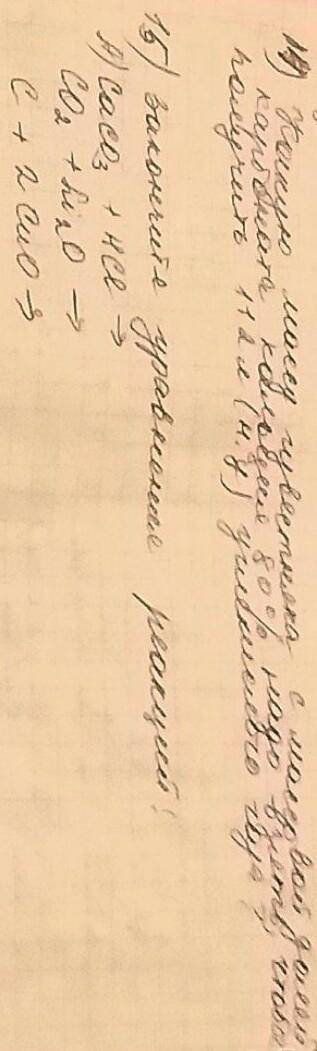 14) Какую массу известняка с массовой долей
карбоната кальция 80% надо взять, чтобы
получить 112 л (н.у) углекислого газа?
15) Закончите уравнение реакций:
А) CaCO3 + HCl →
CO2 + Li2O →
C + 2 CuO →